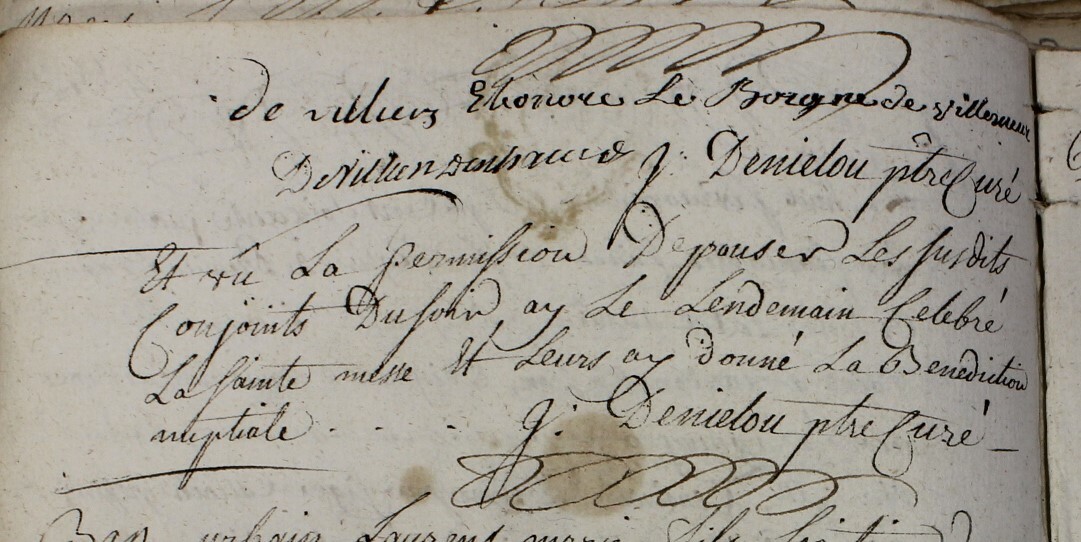 de villiers Eleonore Le Borgne de villemeur
De Villiers J. Denielou ptre Curé
Et vu La permission Depouser Les susdits
Conjoints Du soir ay Le Lendemain Celebré
La sainte messe Et Leurs ay donné La Benediction
nuptiale . . . J. Denielou ptre Curé
urbain Laurent marie fils